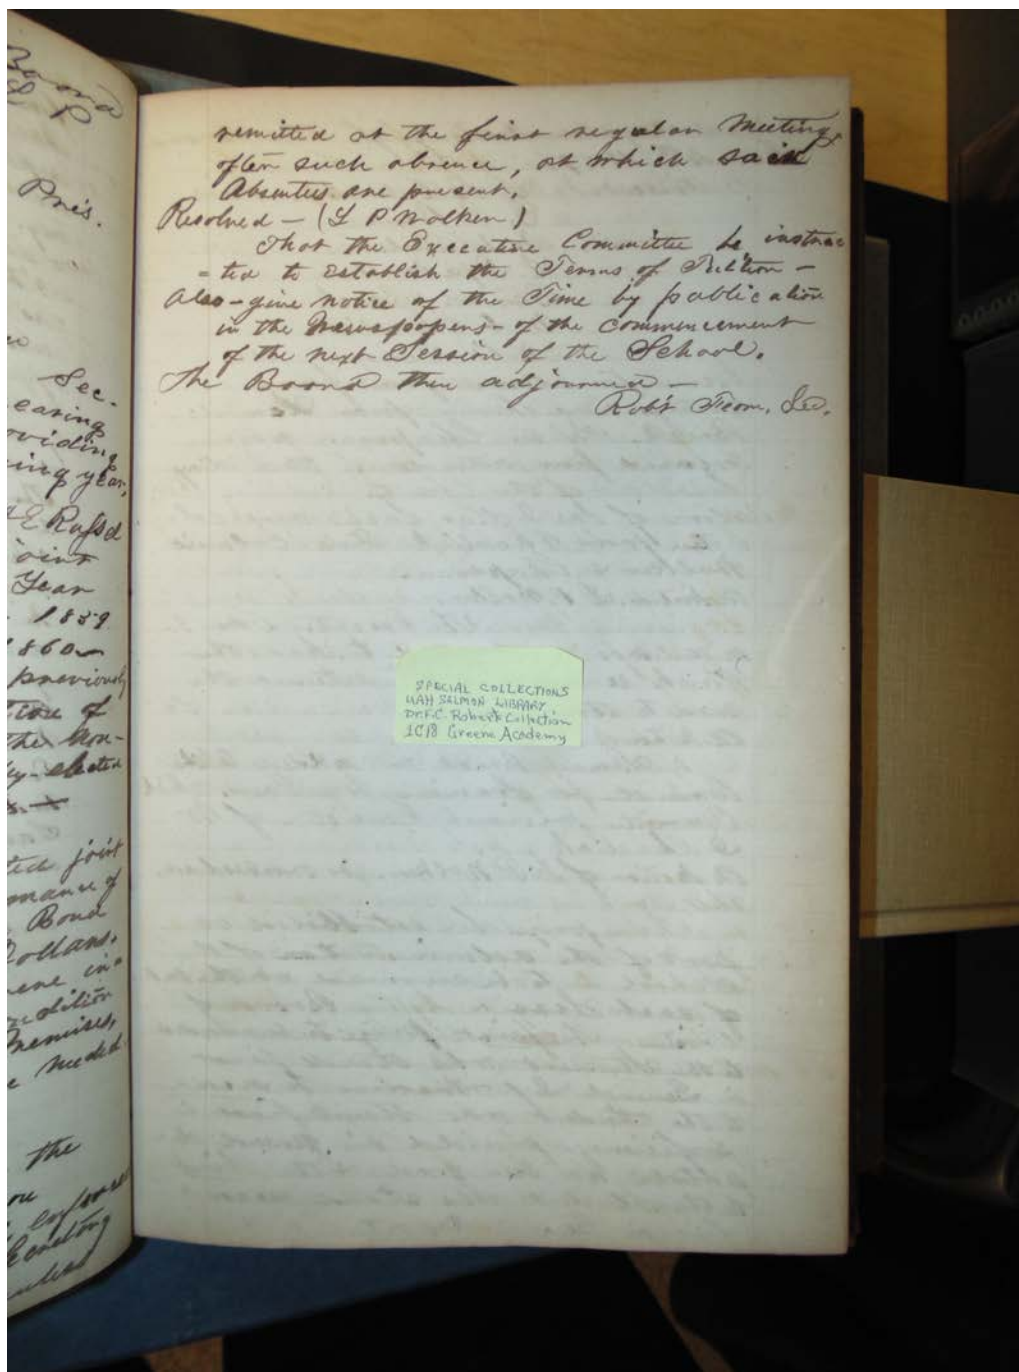 Board
& P
Pres.
Sec.
earing
oviding
ing year,
& E Russd
oint
Year
1859
1860
previously
tion of
the Non-
ly-elected
ted joint
mance of
Bond
Dollars.
ere in=
ndition
Premises,
e needed
the
enforce
Existing
remitted at the first regular Meeting
after such absence, at which said
Absentees are present.
Resolved – (L P Walker)
That the Executive Committee be instruc
=ted to establish the Terms of Tuition –
Also – give notice of the Time by publication
in the Newspapers – of the commencement
of the next Session of the School.
The Board then adjourned –
Robt Fearn, Sec.
SPECIAL COLLECTIONS
UAH SALMON LIBRARY
Dr. F.C. Roberts Collection
1C18 Greene Academy